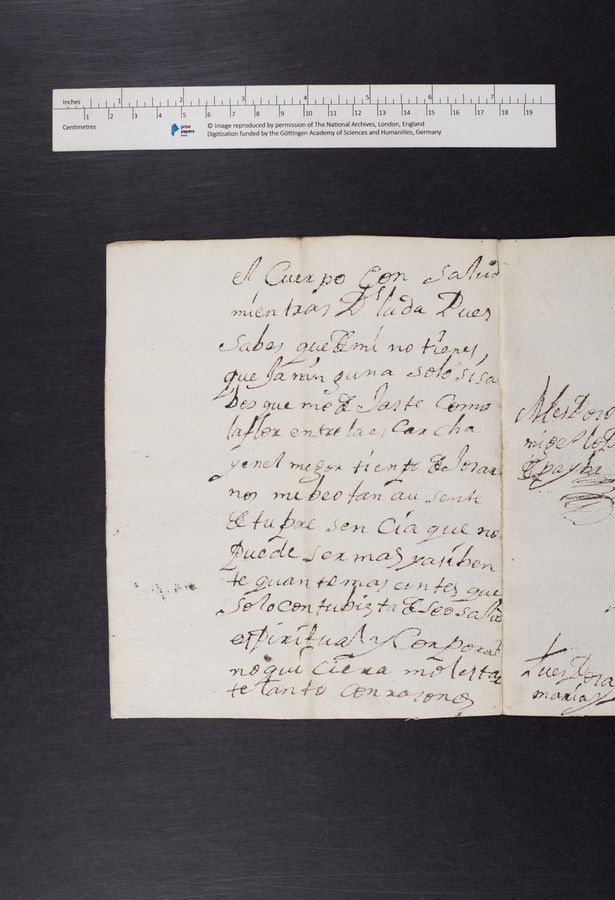 Inches 1 2 3 4 5 6 7
1 2 3 4 5 6 7 8 9 10 11 12 13 14 15 16 17 18 19
Centimetres
prize papers
© Image reproduced by permission of The National Archives, London, England
Digitization funded by the Göttingen Academy of Sciences and Humanities, Germany
el Cuerpo Con salud
mientras Ds lada Pues
sabes que de mi no tienes
que Ja nin guna solo si sa
bes que me de Jaste Como
la flor entre la es Car cha
y en el megor tiento de
nos me beo tan au sente
de tu pre sen Cia que no
Puede ser mas y asi ben
te quan to mas antes que
solo con tu bista deseo salu
espiritual y Corporal
no qui ciera molestar
te tanto con rasones
de
tu es
maria